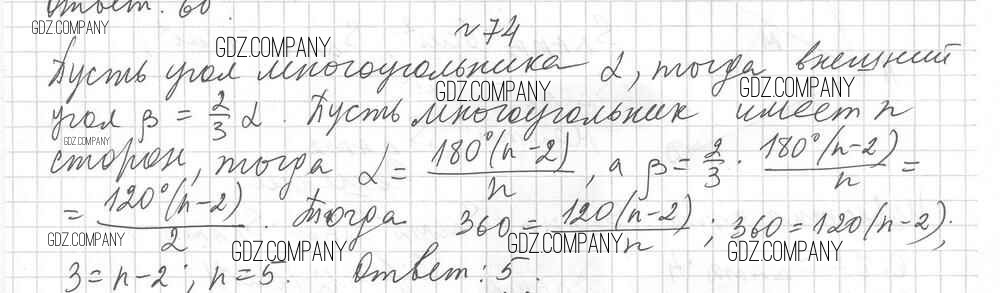 Ответ: 60
GDZ.COMPANY
№74
GDZ.COMPANY
Пусть угол многоугольника α, тогда внешний
GDZ.COMPANY GDZ.COMPANY
угол β = 2/3 α. Пусть многоугольник имеет n
GDZ.COMPANY
сторон, тогда α = 180°(n-2)/n, а β = 2/3 · 180°(n-2)/n =
= 120°(n-2)/2. Тогда 360 = 120(n-2)/n; 360 = 120(n-2);
GDZ.COMPANY GDZ.COMPANY GDZ.COMPANY GDZ.COMPANY
3 = n-2; n = 5. Ответ: 5.